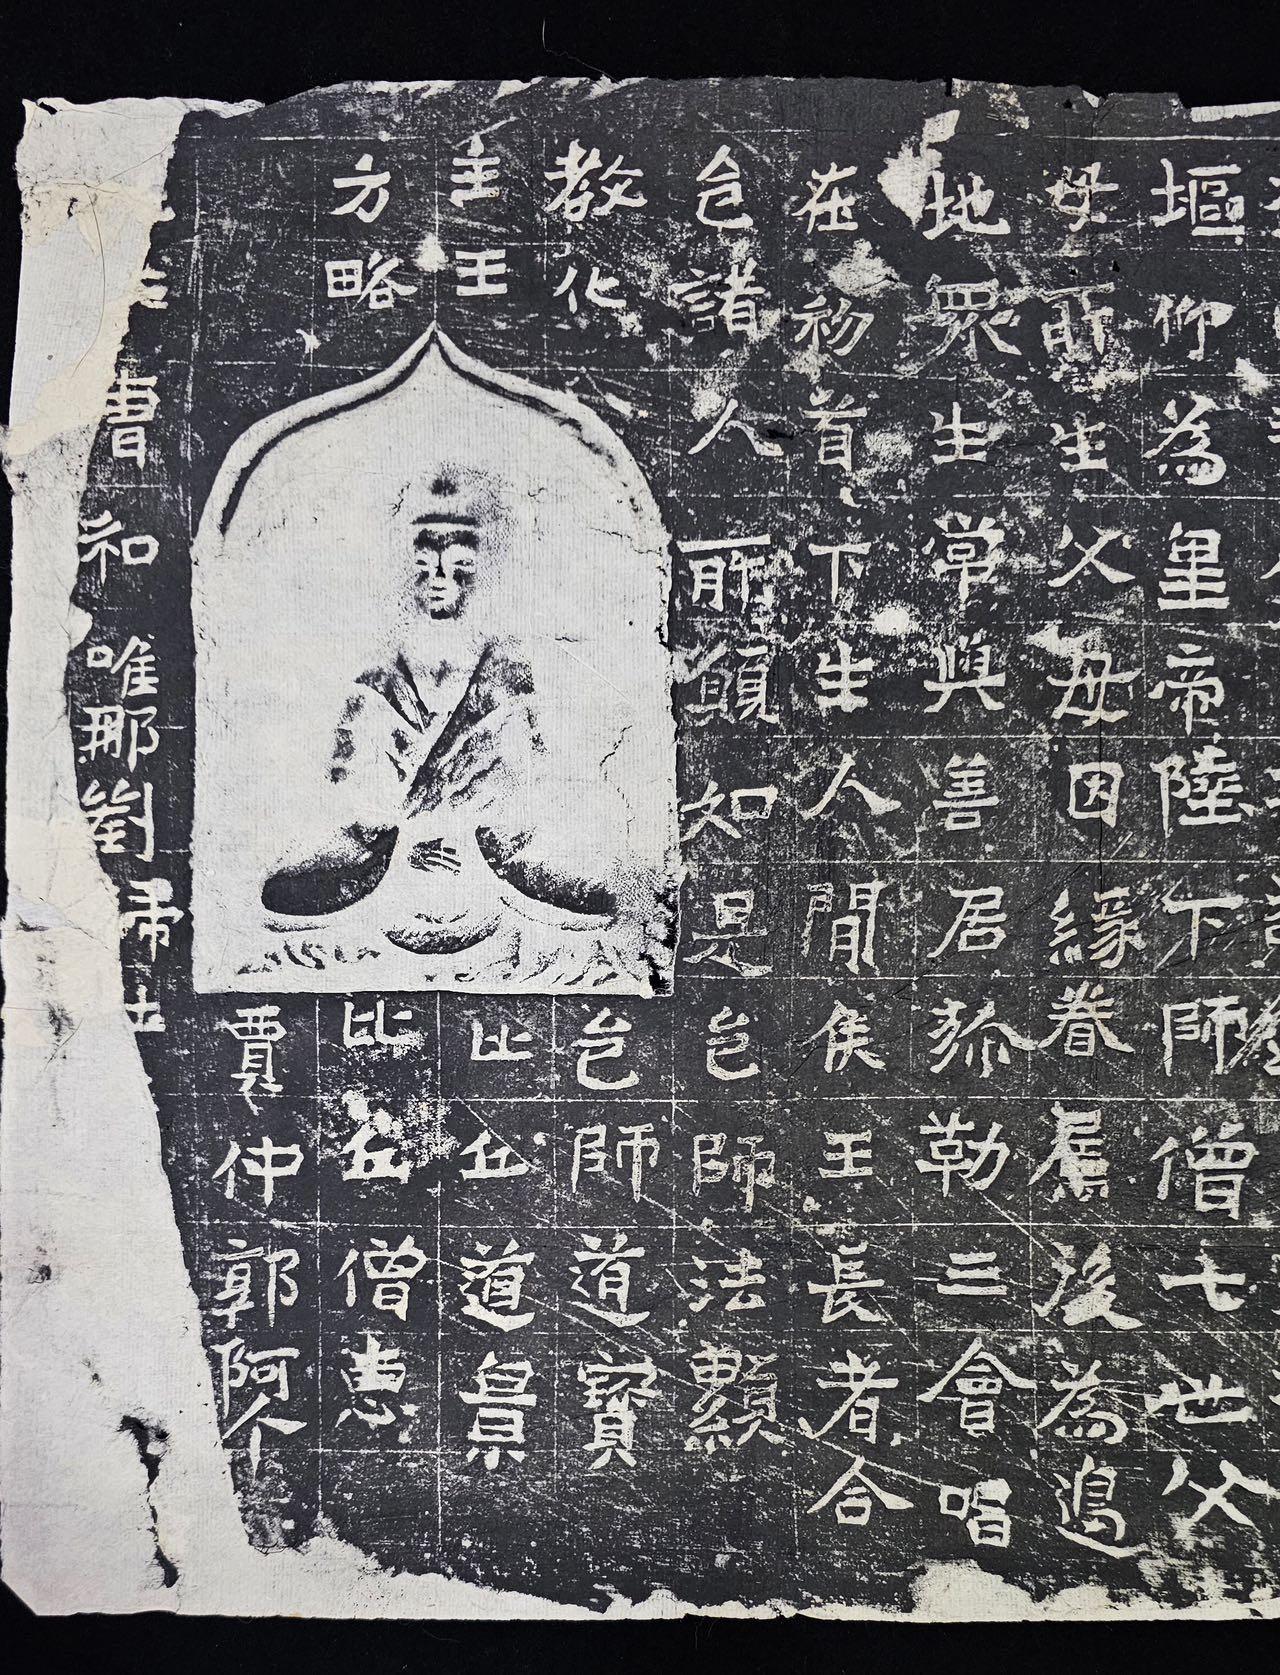 塸仰為皇帝陸下師僧七世父
母所生父母因緣眷屬後為邊
地眾生常與善居弥勒三會唱
在初首下生人間侯王長者合
邑諸人所願如是邑師法顯
教化邑師道寶
主王比丘道景
方略比丘僧惠
賈仲郭阿个
曹和唯那劉歸